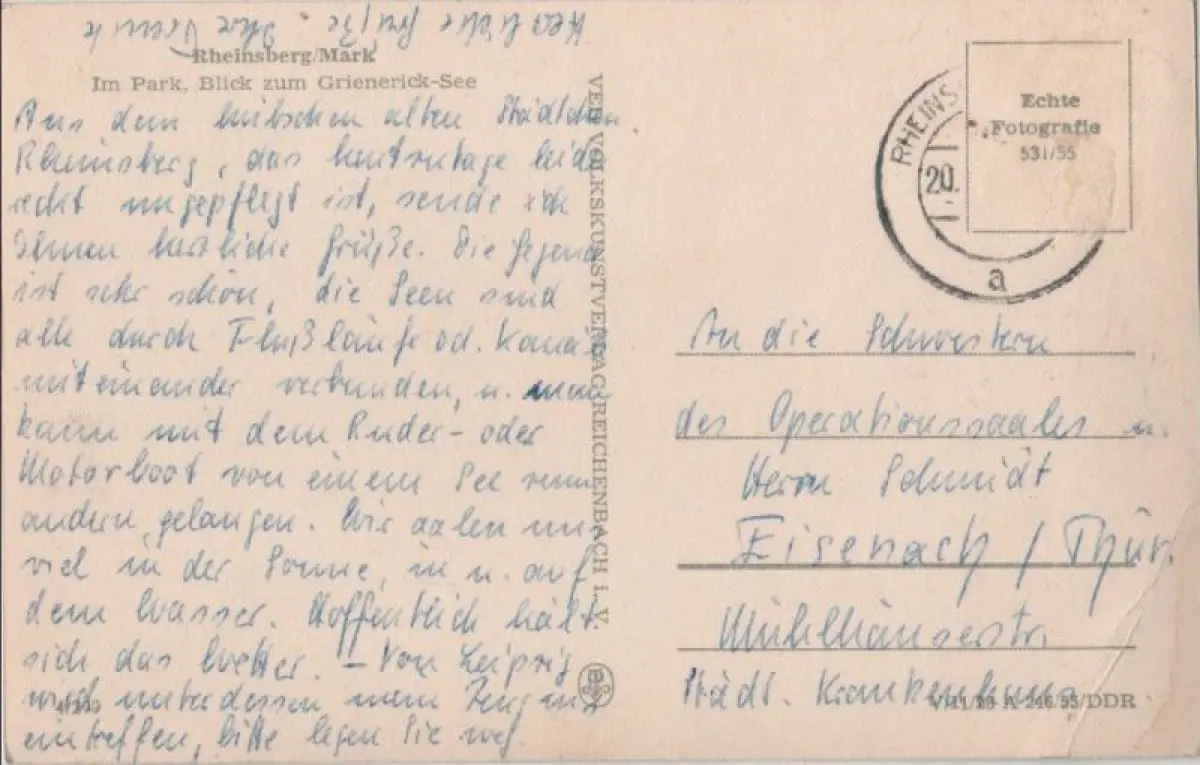 Herzliche Grüße. Ihre
Rheinsberg/Mark
Im Park, Blick zum Grienerick-See
Aus dem hübschen alten Städtchen
Rheinsberg, das heutzutage leider
recht ungepflegt ist, sende ich
Ihnen herzliche Grüße. Die Gegend
ist sehr schön, die Seen sind
alle durch Flußläufe od. Kanäle
miteinander verbunden, u. man
kann mit dem Ruder- oder
Motorboot von einem See zum
andern gelangen. Wir aalen uns
viel in der Sonne, in u. auf
dem Wasser. Hoffentlich hält
sich das Wetter. - Von Leipzig
wird unterdessen mein Zeugnis
eintreffen, bitte legen Sie weg.
VEB VOLKSKUNSTVERLAG REICHENBACH i. V.
RHEINS
20.
a
Echte
Fotografie
531/55
An die Schwestern
des Operationssaales u.
Herrn Schmidt
Eisenach / Thür.
Mühlhäuserstr.
Städt. Krankenhaus
V/11/28 A 246/55/DDR